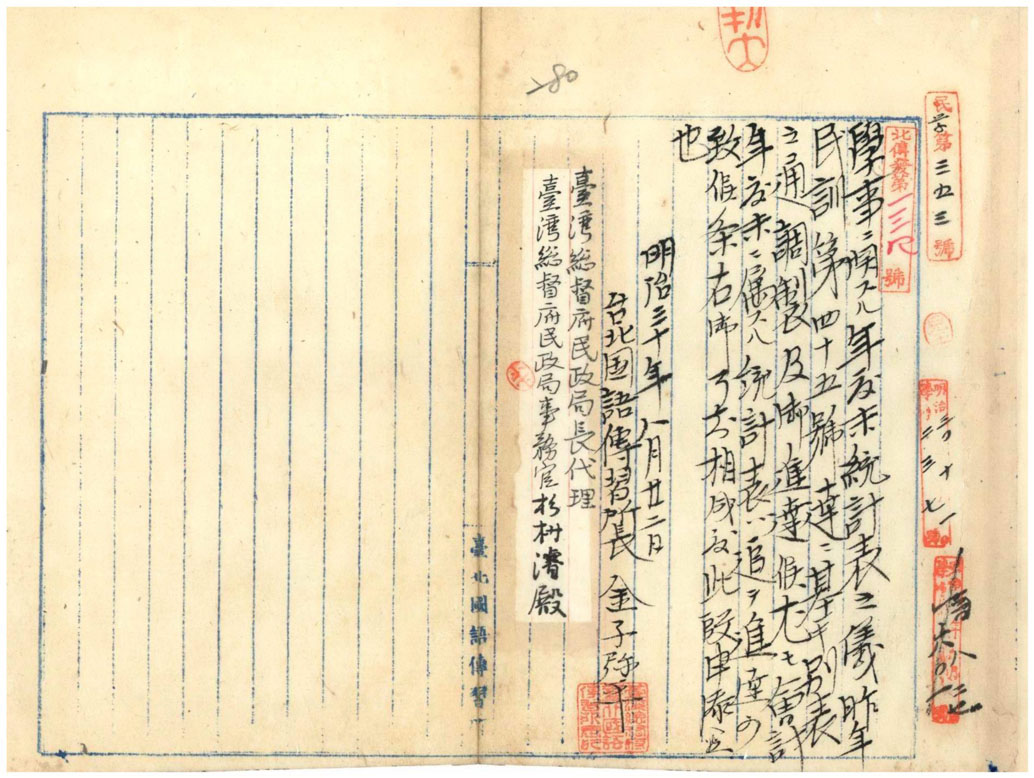 民学第三五三號
北傳發第一三八號
學事ニ関スル年度末統計表之儀昨年
民訓第四十五號御達ニ基キ別表
之通調製及御進達候尤モ會計
年度末ニ属スル統計表ハ追テ進達可
致候条右御了知相成度此段申添候
也
明治三十年八月廿二日
台北国語傳習所長 金子
臺湾総督府民政局長代理
臺湾総督府民政局事務官杉村濬殿
臺北國語傳習
280